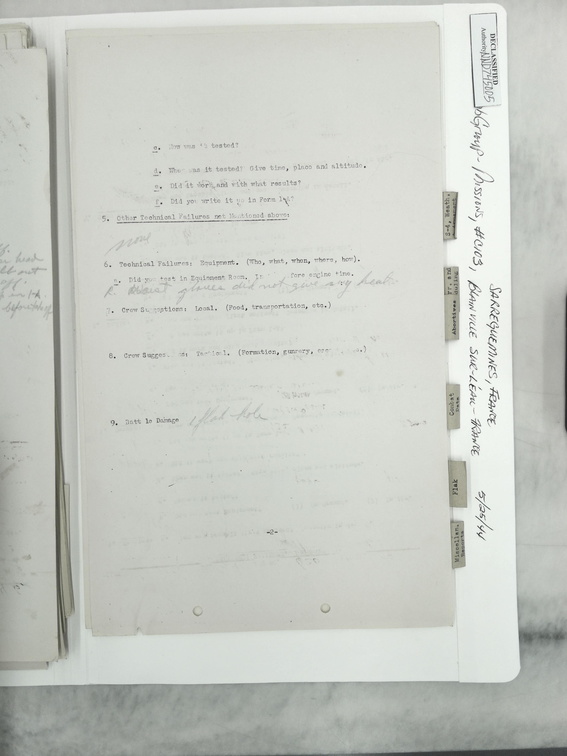 DECLASSIFIED
Authority NND745005
Group - Missions, #C103, Blainville Sur-Léau - France
Sarreguemines, France
5/25/44
c. How was it tested?
d. When was it tested? Give time, place and altitude.
e. Did it work and with what results?
f. Did you write it up in Form 1-A?
5. Other Technical Failures not Mentioned above:
none
6. Technical Failures: Equipment. (Who, what, when, where, how).
a. Did you test in Equipment Room, fore engine time.
gloves did not give any heat
7. Crow Suggestions: Local. (Food, transportation, etc.)
8. Crow Suggestions: Tactical. (Formation, gunnery,
9. Battle Damage flak hole
-2-
S-4, Heath.
Fr. and
Abortions
Combat
Flak
Miscellan.
head
out